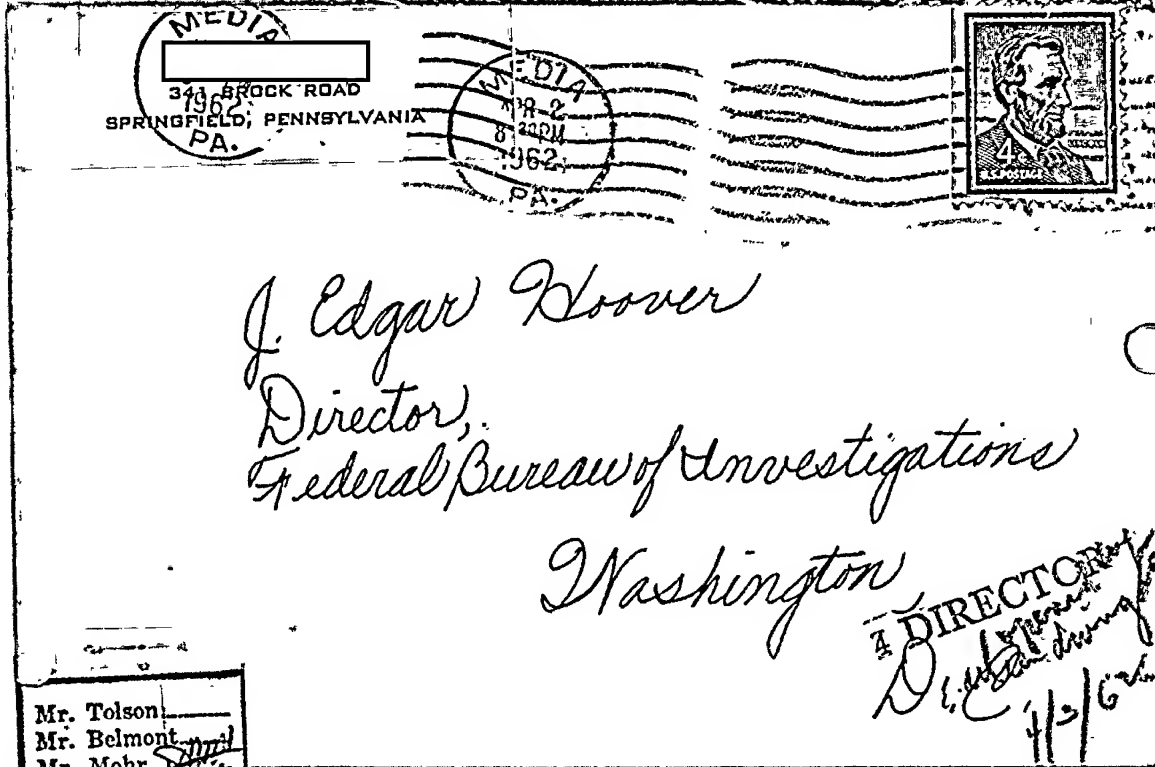 MEDIA
341 BROCK ROAD
1962
SPRINGFIELD, PENNSYLVANIA
PA.
MEDIA
APR-2
8 30 PM
1962
PA.
4¢
U.S. POSTAGE
J. Edgar Hoover
Director,
Federal Bureau of Investigations
Washington
DIRECTOR
4/3/62
Mr. Tolson
Mr. Belmont
Mr. Mohr